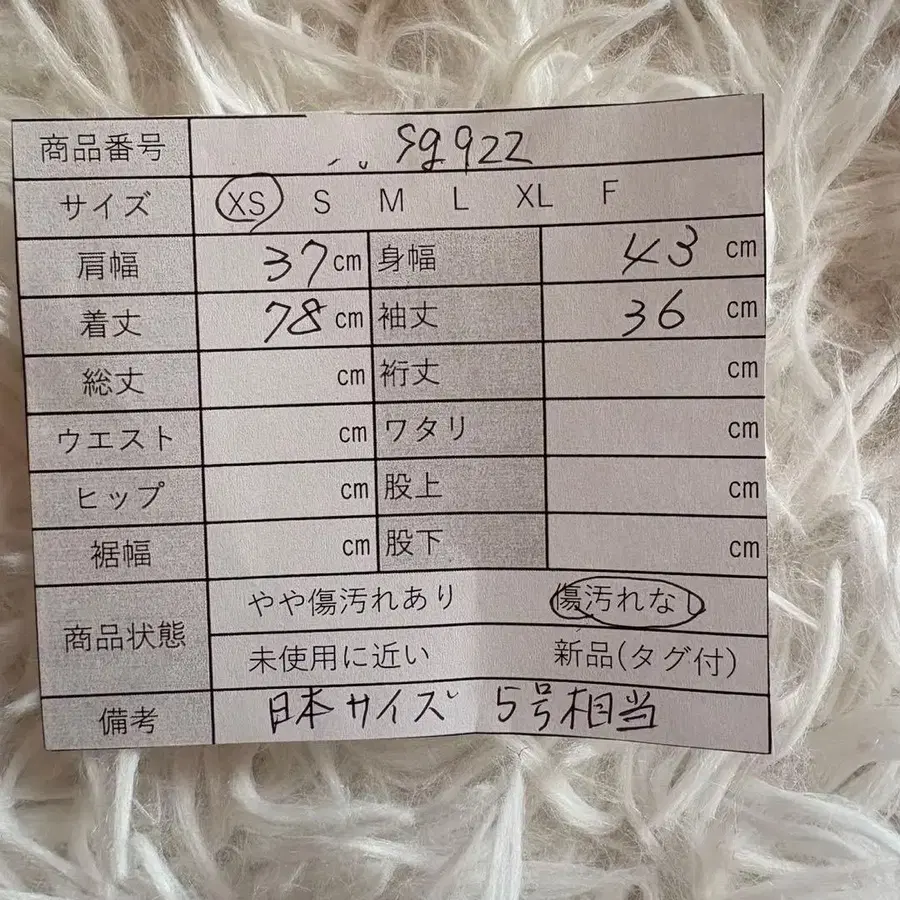 商品番号 sg922
サイズ XS S M L XL F
肩幅 37cm 身幅 43 cm
着丈 78cm 袖丈 36 cm
総丈 cm 裄丈 cm
ウエスト cm ワタリ cm
ヒップ cm 股上 cm
裾幅 cm 股下 cm
商品状態 やや傷汚れあり 傷汚れなし
未使用に近い 新品(タグ付)
備考 日本サイズ 5号相当